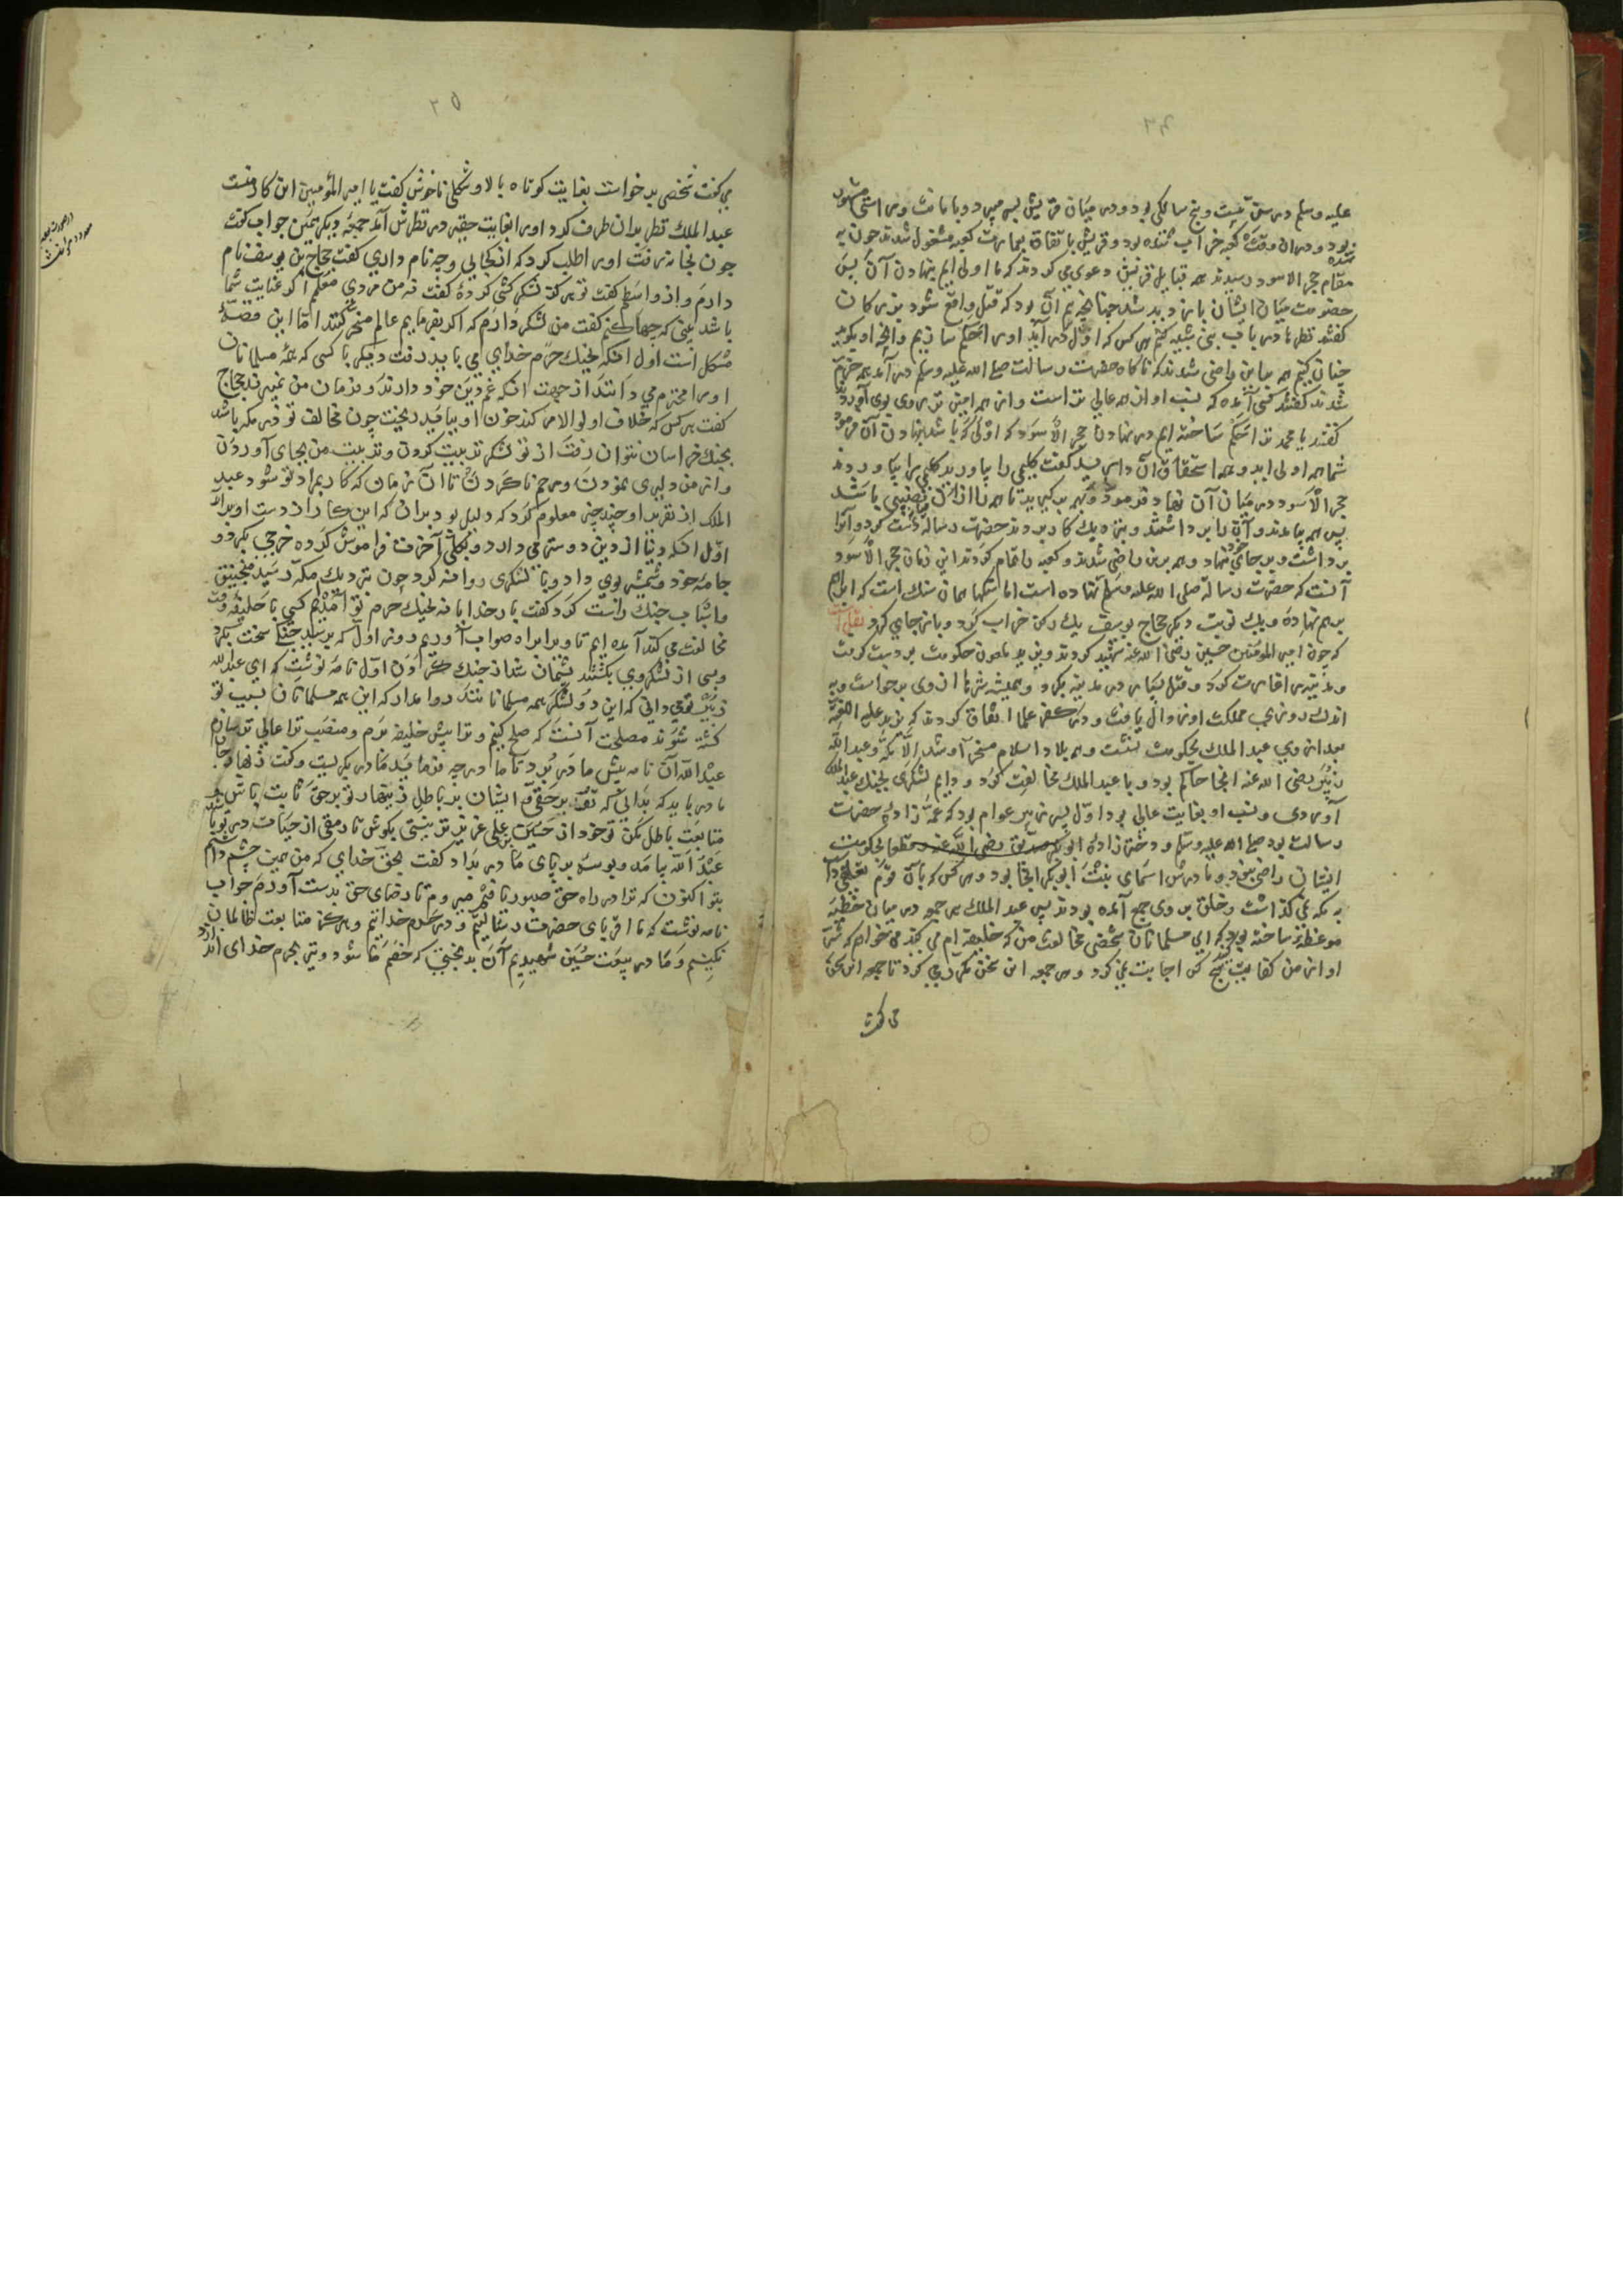 علیه وسلم در سن بیست و پنج سالکی بود و در میان قریش بس مهیب و با امانت و راستی مشهور
شده بود و دران وقت کعبه خراب شده بود و قریش باتفاق بعمارت کعبه مشغول شدند چون به
مقام حجر الاسود رسیدند همه قبایل قریش دعوی می کردند که ما اولی ایم بنهادن آن پس
خصومت میان ایشان بادید شد چنانچه بیم آن بود که قتل واقع شود بزرکان
گفتند نظر ما در باب بنی شیبه کنیم هر کس که اول در آید اورا حکم سازیم وانچه او بکوید
چنان کنیم همه باین راضی شدند که ناکاه حضرت رسالت صلی الله علیه وسلم در آمد همه خرم
شدند گفتند کسی آمده که نسب او از همه عالی تر است و از همه امین تر روی بوی آوردند
گفتند یا محمد ترا حکم ساخته ایم در نهادن حجر الاسود که اولی که باشد بنهادن آن فرمود
شما همه اولی اید و همه استحقاق آن دارید گفت کلیمی را بیاورید کلیمی را بیاوردند
حجر الاسود در میان آن نهاد فرمود همه بر کیرید تا همه را از آن نصیبی باشد
پس همه بیامدند و آن را برداشتند و بنزدیک کار بردند حضرت رساله دست کرد و آنرا
برداشت و بر جای خود نهاد و همه برین راضی شدند و کعبه را تمام کردند این زمان حجر الاسود
آنست که حضرت رسالة صلی الله علیه وسلم نهاده است اما سنکها همان سنک است که ابراهیم
بر هم نهاده و یک نوبت دیکر حجاج یوسف یک رکن خراب کرد و باز جای کرد نقل است
که چون امیر المؤمنین حسین رضی الله عنه شهید کردند و یزید ملعون حکومت بر دست کرفت
و مدینه را غارت کرد و قتل بسیار در مدینه بکرد و همیشه شر ما از وی برخواست و به
اندک روزی مملکت او زوال یافت و در کفر علما اتفاق کردند که یزید علیه اللعنة
بعد از وی عبد الملک بحکومت بنشست و همه بلاد اسلام مسخر او شد الا مکه و عبد الله
زبیر رضی الله عنه انجا حاکم بود و با عبد الملک مخالفت کرد و دایم لشکری بجنک عبد الملک
آوردی و نسب او بغایت عالی بود اول پسر زبیر عوام بود که عمه زادهٔ حضرت
رسالت بود صلی الله علیه وسلم و دختر زادهٔ ابوبکر صدیق رضی الله عنه و مطلقا بحکومت
ایشان راضی نبود و مادرش اسمای بنت ابوبکر انجا بود و هر کس که با آن قوم تعلقی داشت
به مکه می گذاشت و خلق بر وی جمع آمده بودند پس عبد الملک هر جمعه در میان خطبه
موعظه ساخته بود که ای مسلمانان شخصی مخالفت من که خلیفه ام می کند می خواهم که شر
او از من کفایت کند هیچ کس اجابت نمی کرد و هر جمعه این سخن مکرر می کرد تا جمعه این سخن
می گفت
۲۵
می گفت شخصی برخواست بغایت کوتاه بالا و شکلی ناخوش گفت یا امیر المؤمنین این کار منست
عبد الملک نظر بدان طرف کرد اورا بغایت حقیر در نظرش آمد جمعه دیکر همین جواب گفت
چون بخانه رفت اورا طلب کرد که از کجایی و چه نام داری گفت حجاج بن یوسف نام
دارم و از واسطم گفت تو هرکز لشکر کشی کردهٔ گفت نه من مردی معلم اکر عنایت شما
باشد بینی که چها کنم گفت من لشکر دارم که اکر بفرمایم عالم مسخر کنند اما این قصهٔ
مشکل است اول انکه بجنک حرم خدای می باید رفت دیکر با کسی که همه مسلمانان
اورا محترم می دانند از جهت انکه غم دین خود دارند و بزمان من نمیروند حجاج
گفت هر کس که خلاف اولو الامر کند خون او بباید ریخت چون مخالف تو در مکه باشد
بجنک خراسان نتوان رفت از تو لشکر تربیت کردن و تربیت من بجای آوردن
و از من دلیری نمودن و رحم ناکردن تا آن زمان که کار بمراد تو شود عبد
الملک از تقریر او چند چیز معلوم کرد که دلیل بود بران که این کار از دست او براید
اول انکه دنیا از دین دوستر می دارد و بکلی آخرت فراموش کرده خرجی بکرد و
جامه خود و شمشیر بوی داد و با لشکری روانه کرد چون نزدیک مکه رسید منجنیق
واسباب جنک راست کرد گفت بار خدایا نه بجنک حرم تو آمدیم کسی با خلیفه وقت
مخالفت می کند آمده ایم تا ویرا براه صواب آوریم روز اول که برسید جنک سخت بکرد
و بسی از لشکر وی بکشتند پشیمان شد از جنک کردن اول نامه نوشت که ای عبد الله
زبیر تو می دانی که این دو لشکر همه مسلمانانند روا مدار که این همه مسلمانان بسبب تو
کشته شوند مصلحت آنست که صلح کنیم و ترا پیش خلیفه برم و منصب ترا عالی تر سازم
عبد الله آن نامه پیش مادر برد تا مادر چه فرماید مادر بکریست و گفت
مادر باید که بدانی که تو بر حقی و ایشان بر باطل زینهار تو بر حق ثابت باش و
متابعت باطل مکن تو خود از حسین علی عزیز تر نیستی بکوش تا رمقی از حیات در تو باشد
عبد الله بیامد و بوسه بر پای مادر بداد گفت بحق خدای که من همین چشم دارم
بتو اکنون که ترا در راه حق صبور یافتم میروم تا رضای حق بدست آورم جواب
نامه نوشت که ما اقربای حضرت رسالتیم و در حرم خدائیم و هرکز متابعت ظالمان
نکنیم و ما در بیعت حسین شهیدیم آن بدبختی که خصم ما شود و تیر بحرم خدای اندازد